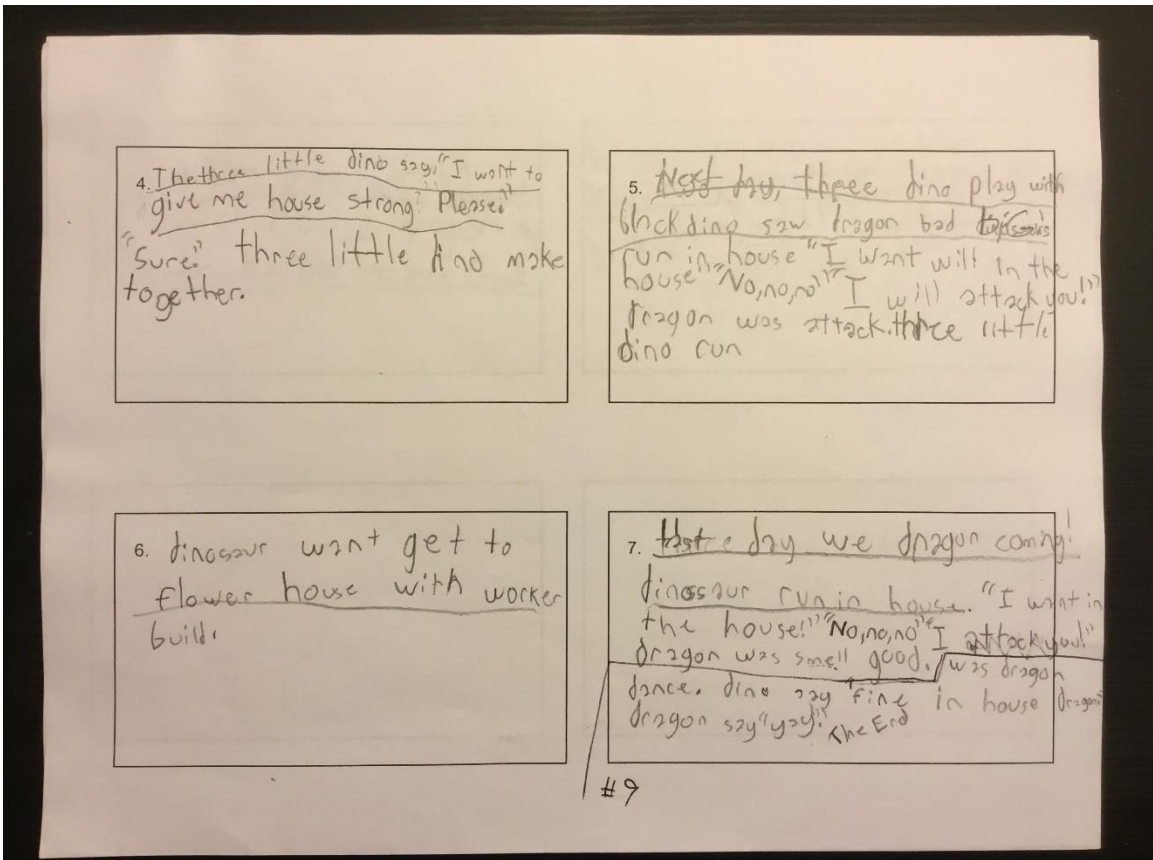 4. The three little dino say, "I want to
give me house strong? Please?"
"Sure." three little dino make
together.
5. Next day, three dino play with
block dino saw dragon bad
run in house "I want will in the
house" "No, no, no" "I will attack you!"
dragon was attack. three little
dino run
6. dinosaur want get to
flower house with worker
build.
7. day we dragon coming!
dinosaur run in house. "I want in
the house!" "No, no, no" "I attack you!"
dragon was smell good. was dragon
dance. dino say "fine in house dragon"
dragon say "yay!" The End
#9